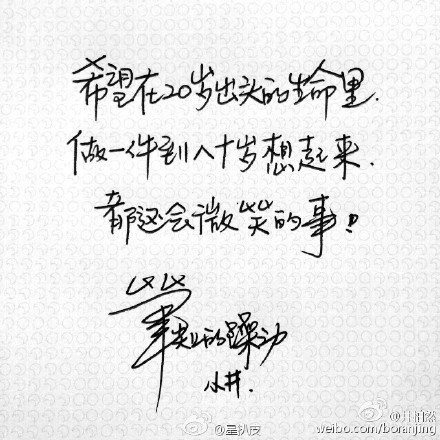 希望在20岁出头的生命里.
做一件到八十岁想起来.
都还会微笑的事!
筆尖的躁动
小井.
@星扒皮
@井柏然
weibo.com/boranjing